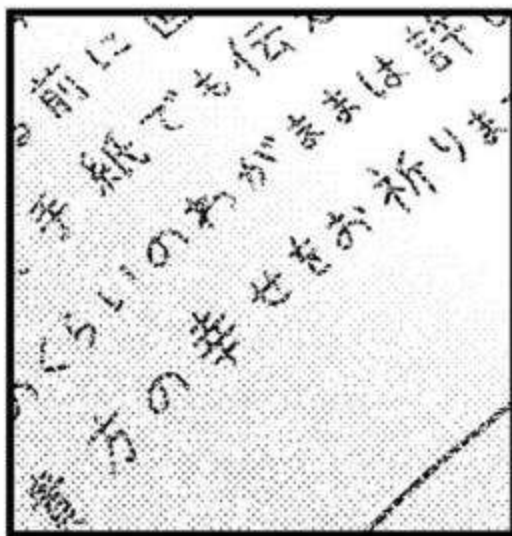 前に
手紙でも伝
ぐらいのわがままは許
貴方の幸せをお祈りま